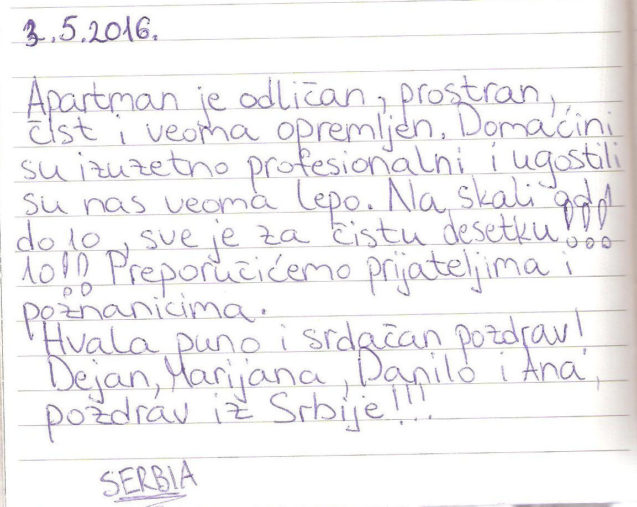 3.5.2016.
Apartman je odličan, prostran,
čist i veoma opremljen. Domaćini
su izuzetno profesionalni i ugostili
su nas veoma lepo. Na skali od 1
do 10, sve je za čistu desetku!!!
10!! Preporučićemo prijateljima i
poznanicima.
Hvala puno i srdačan pozdrav!
Dejan, Marijana, Danilo i Ana,
pozdrav iz Srbije!!!
SERBIA